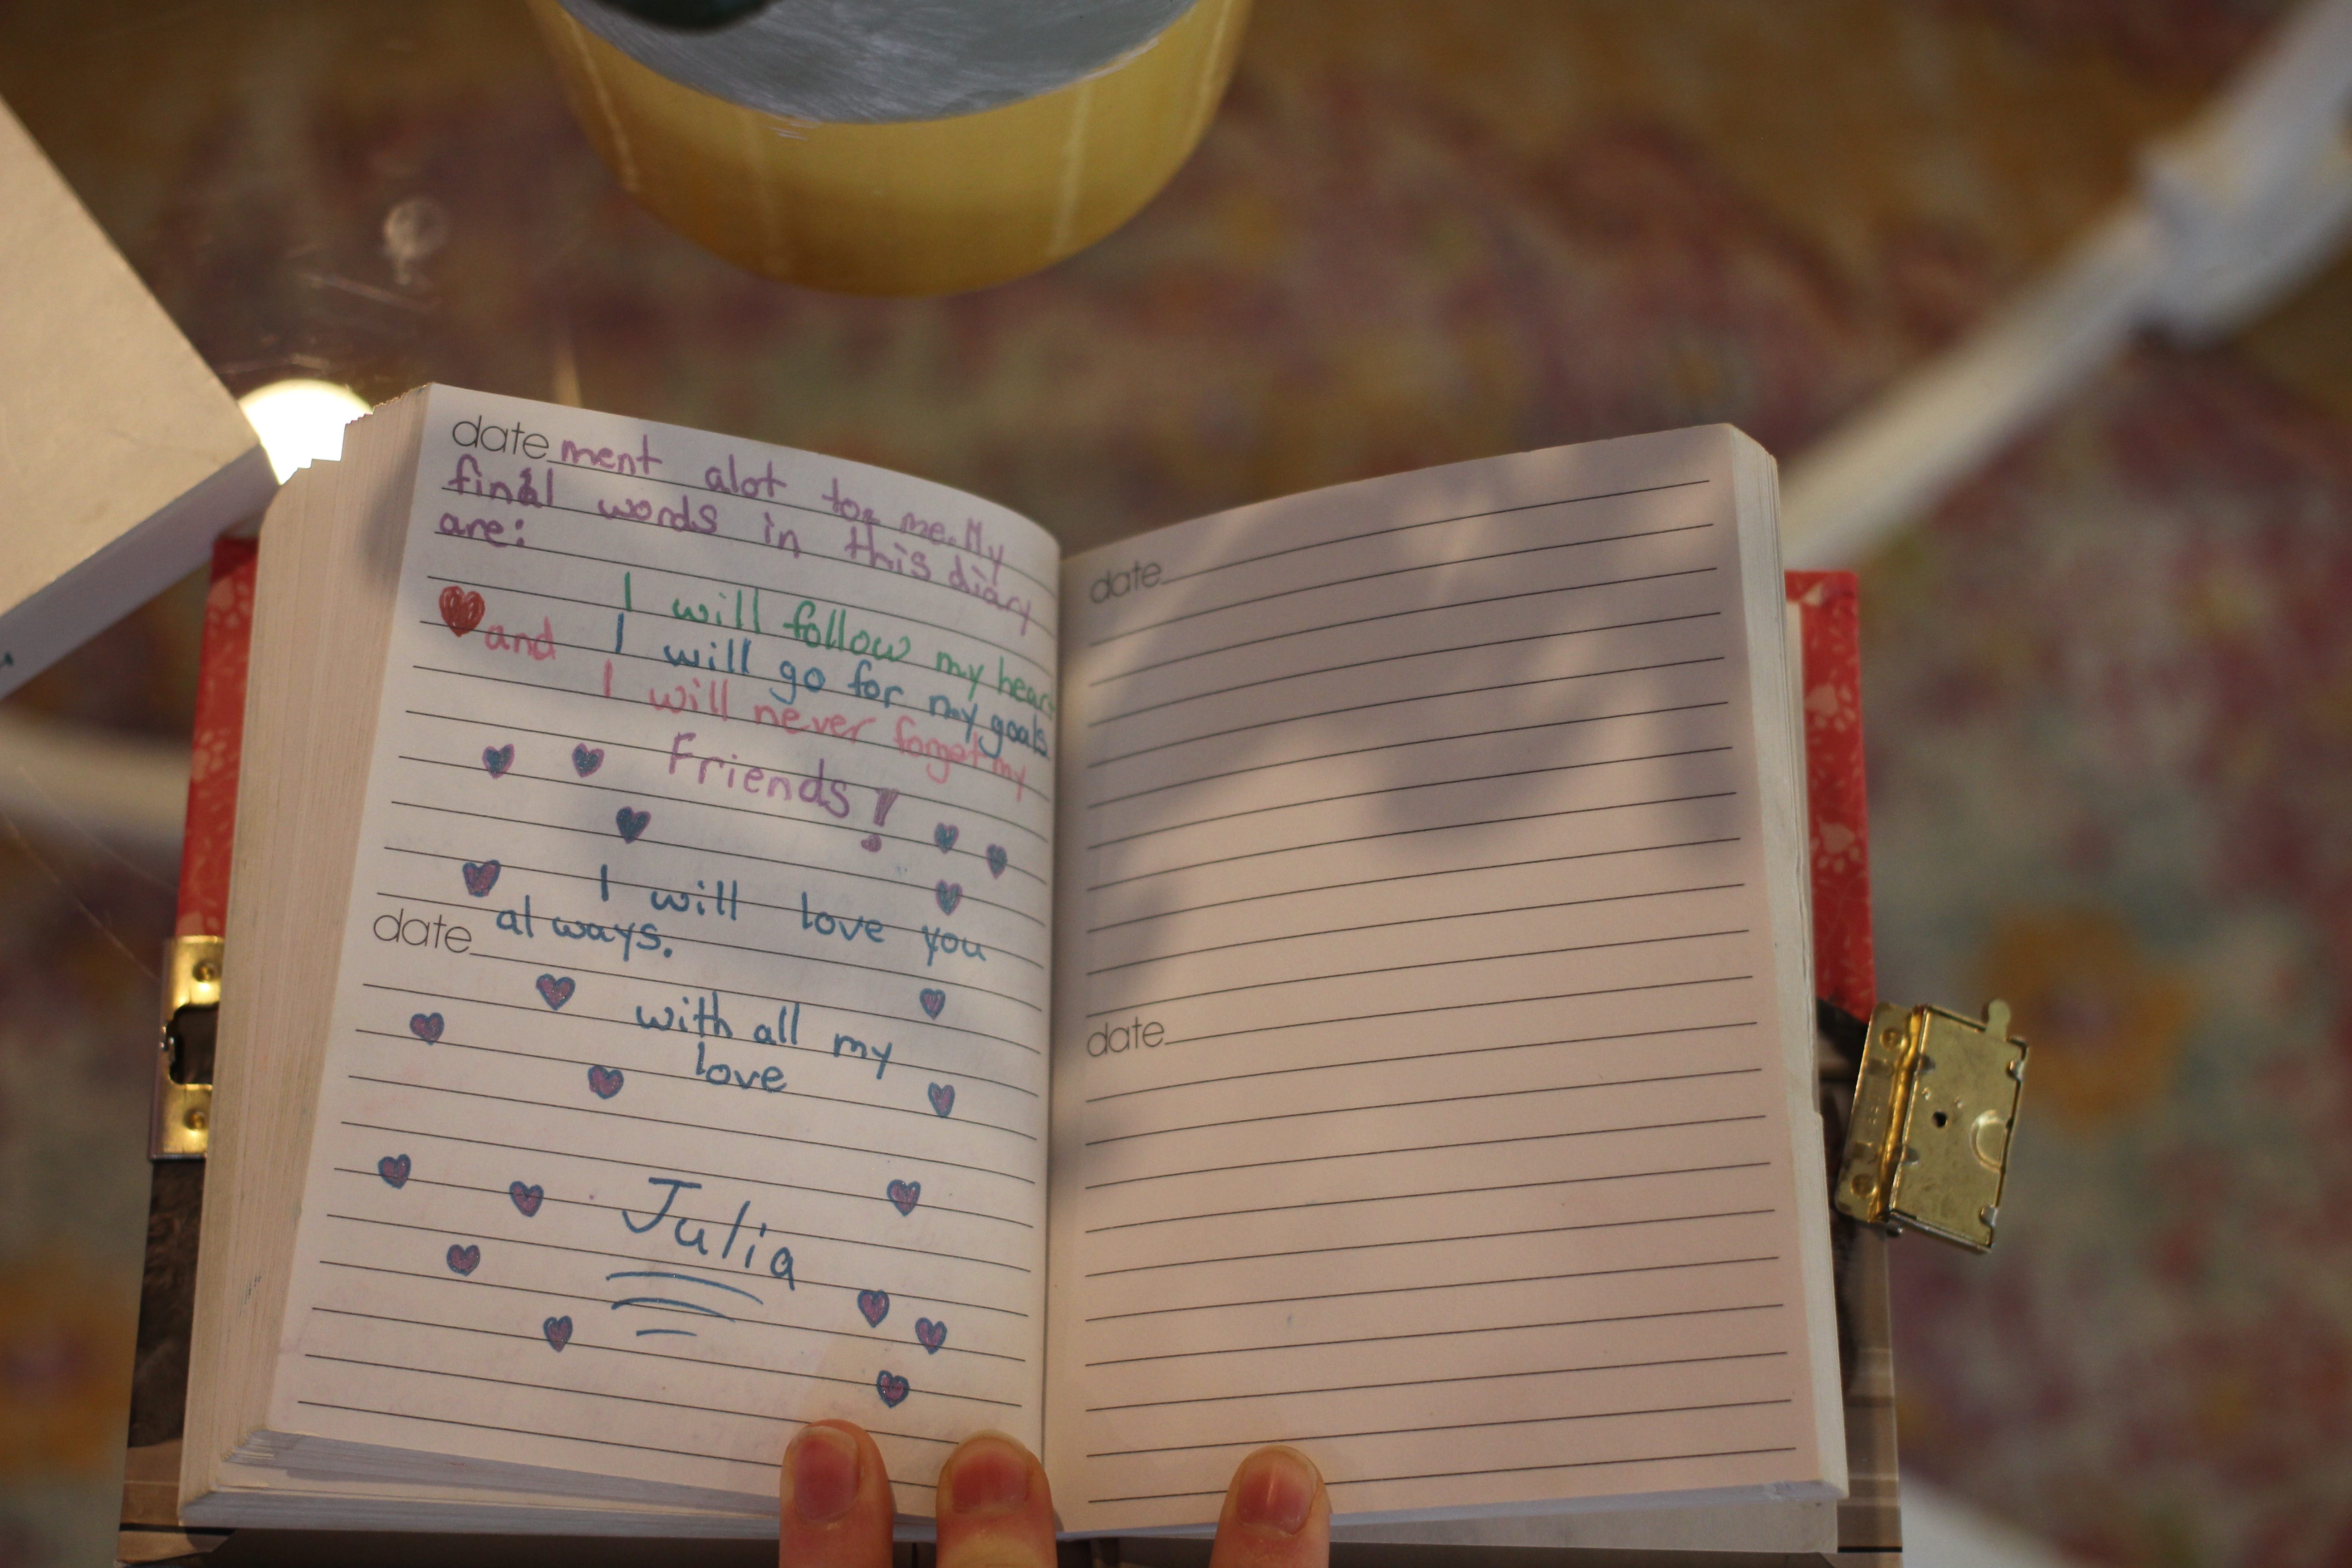 date ment alot to me. My
final words in this diary
are:
I will follow my heart
and I will go for my goals
I will never forget my
Friends!
I will love you
date always.
with all my
love
Julia
date
date